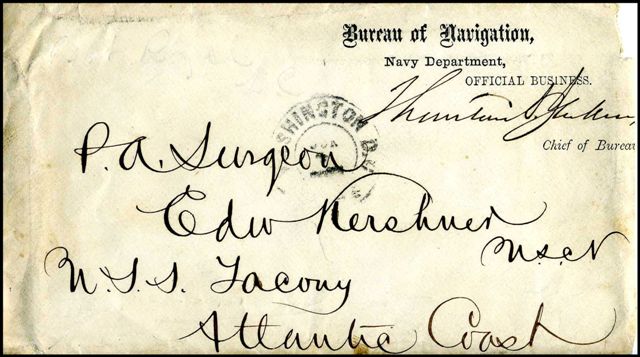 Bureau of Navigation,
Navy Department,
OFFICIAL BUSINESS.
Chief of Bureau
WASHINGTON D.C.
P.A. Surgeon
Edw Kershner
U.S.N
U.S.S. Tacony
Atlantic Coast